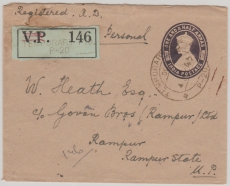 Registered. A.D.
Personal
V.P. 146
W. Heath Esq.
c/o Govan Bros (Rampur) Ltd
Rampur
Rampur State
U.P.